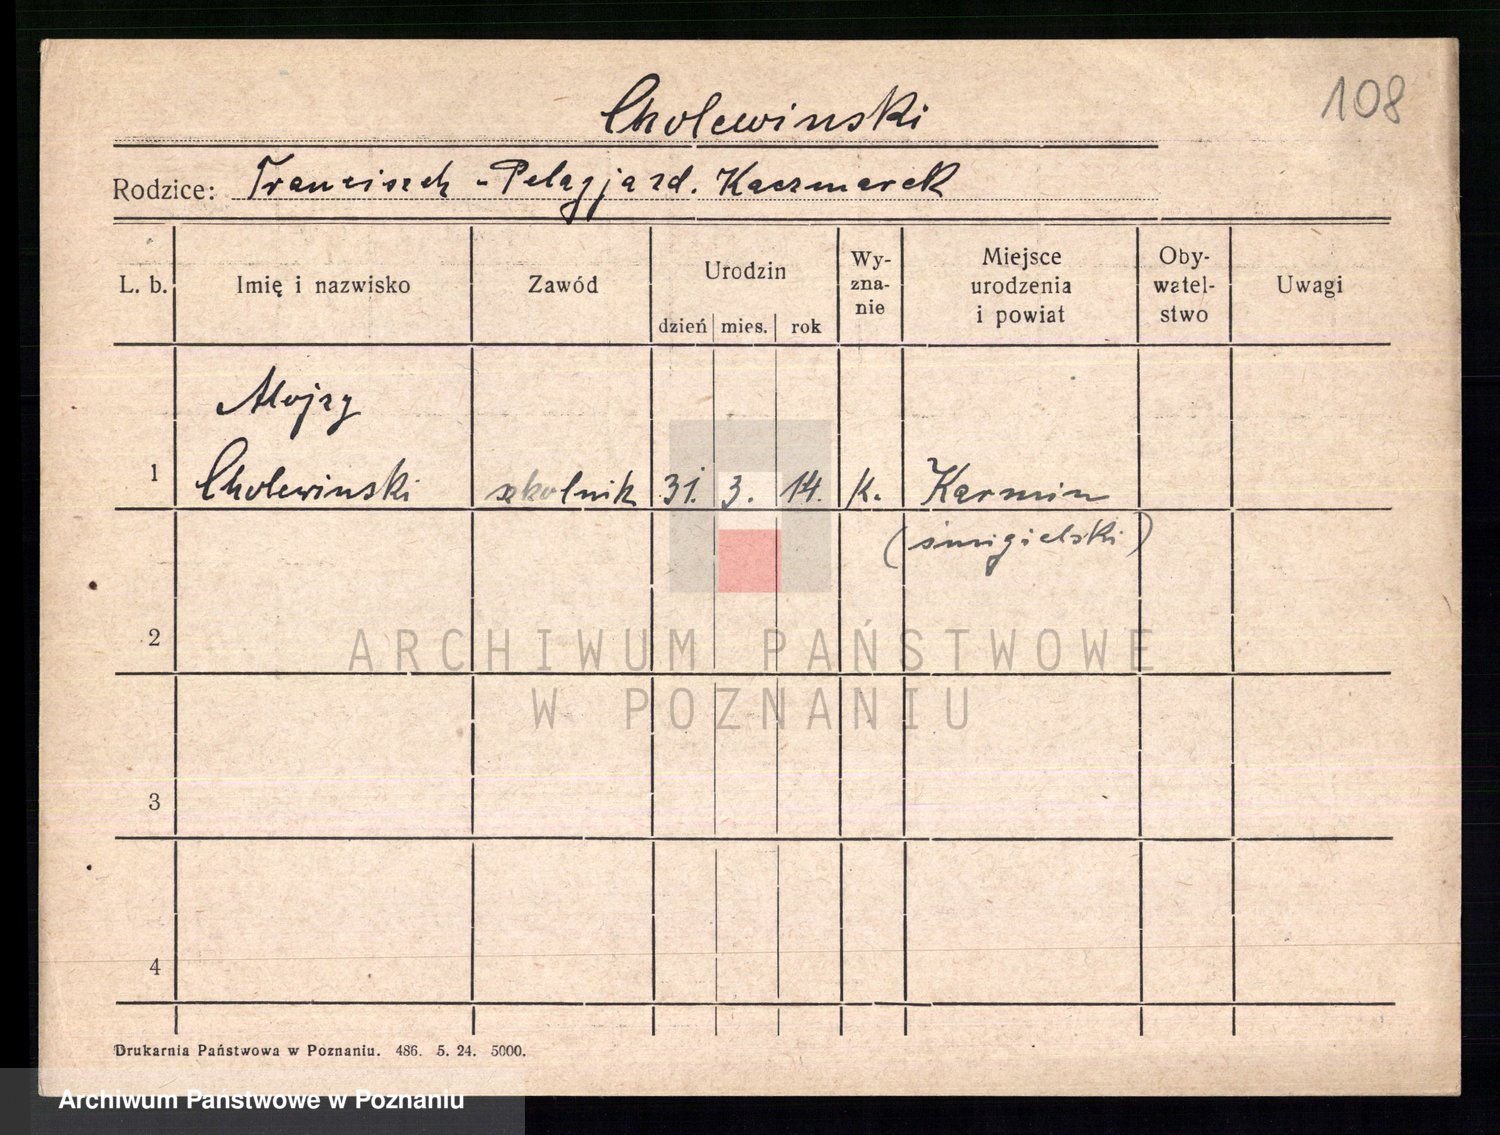 108
Cholewinski
Rodzice: Franciszek - Pelagja zd. Kaczmarek
L. b. Imię i nazwisko Zawód Urodzin dzień mies. rok Wy-zna-nie Miejsce urodzenia i powiat Oby-watel-stwo Uwagi
Alojzy
1 Cholewinski szkolnik 31. 3. 14. k. Karmin
(śmigielski)
2
ARCHIWUM PAŃSTWOWE
W POZNANIU
3
4
Drukarnia Państwowa w Poznaniu. 486. 5. 24. 5000.
Archiwum Państwowe w Poznaniu